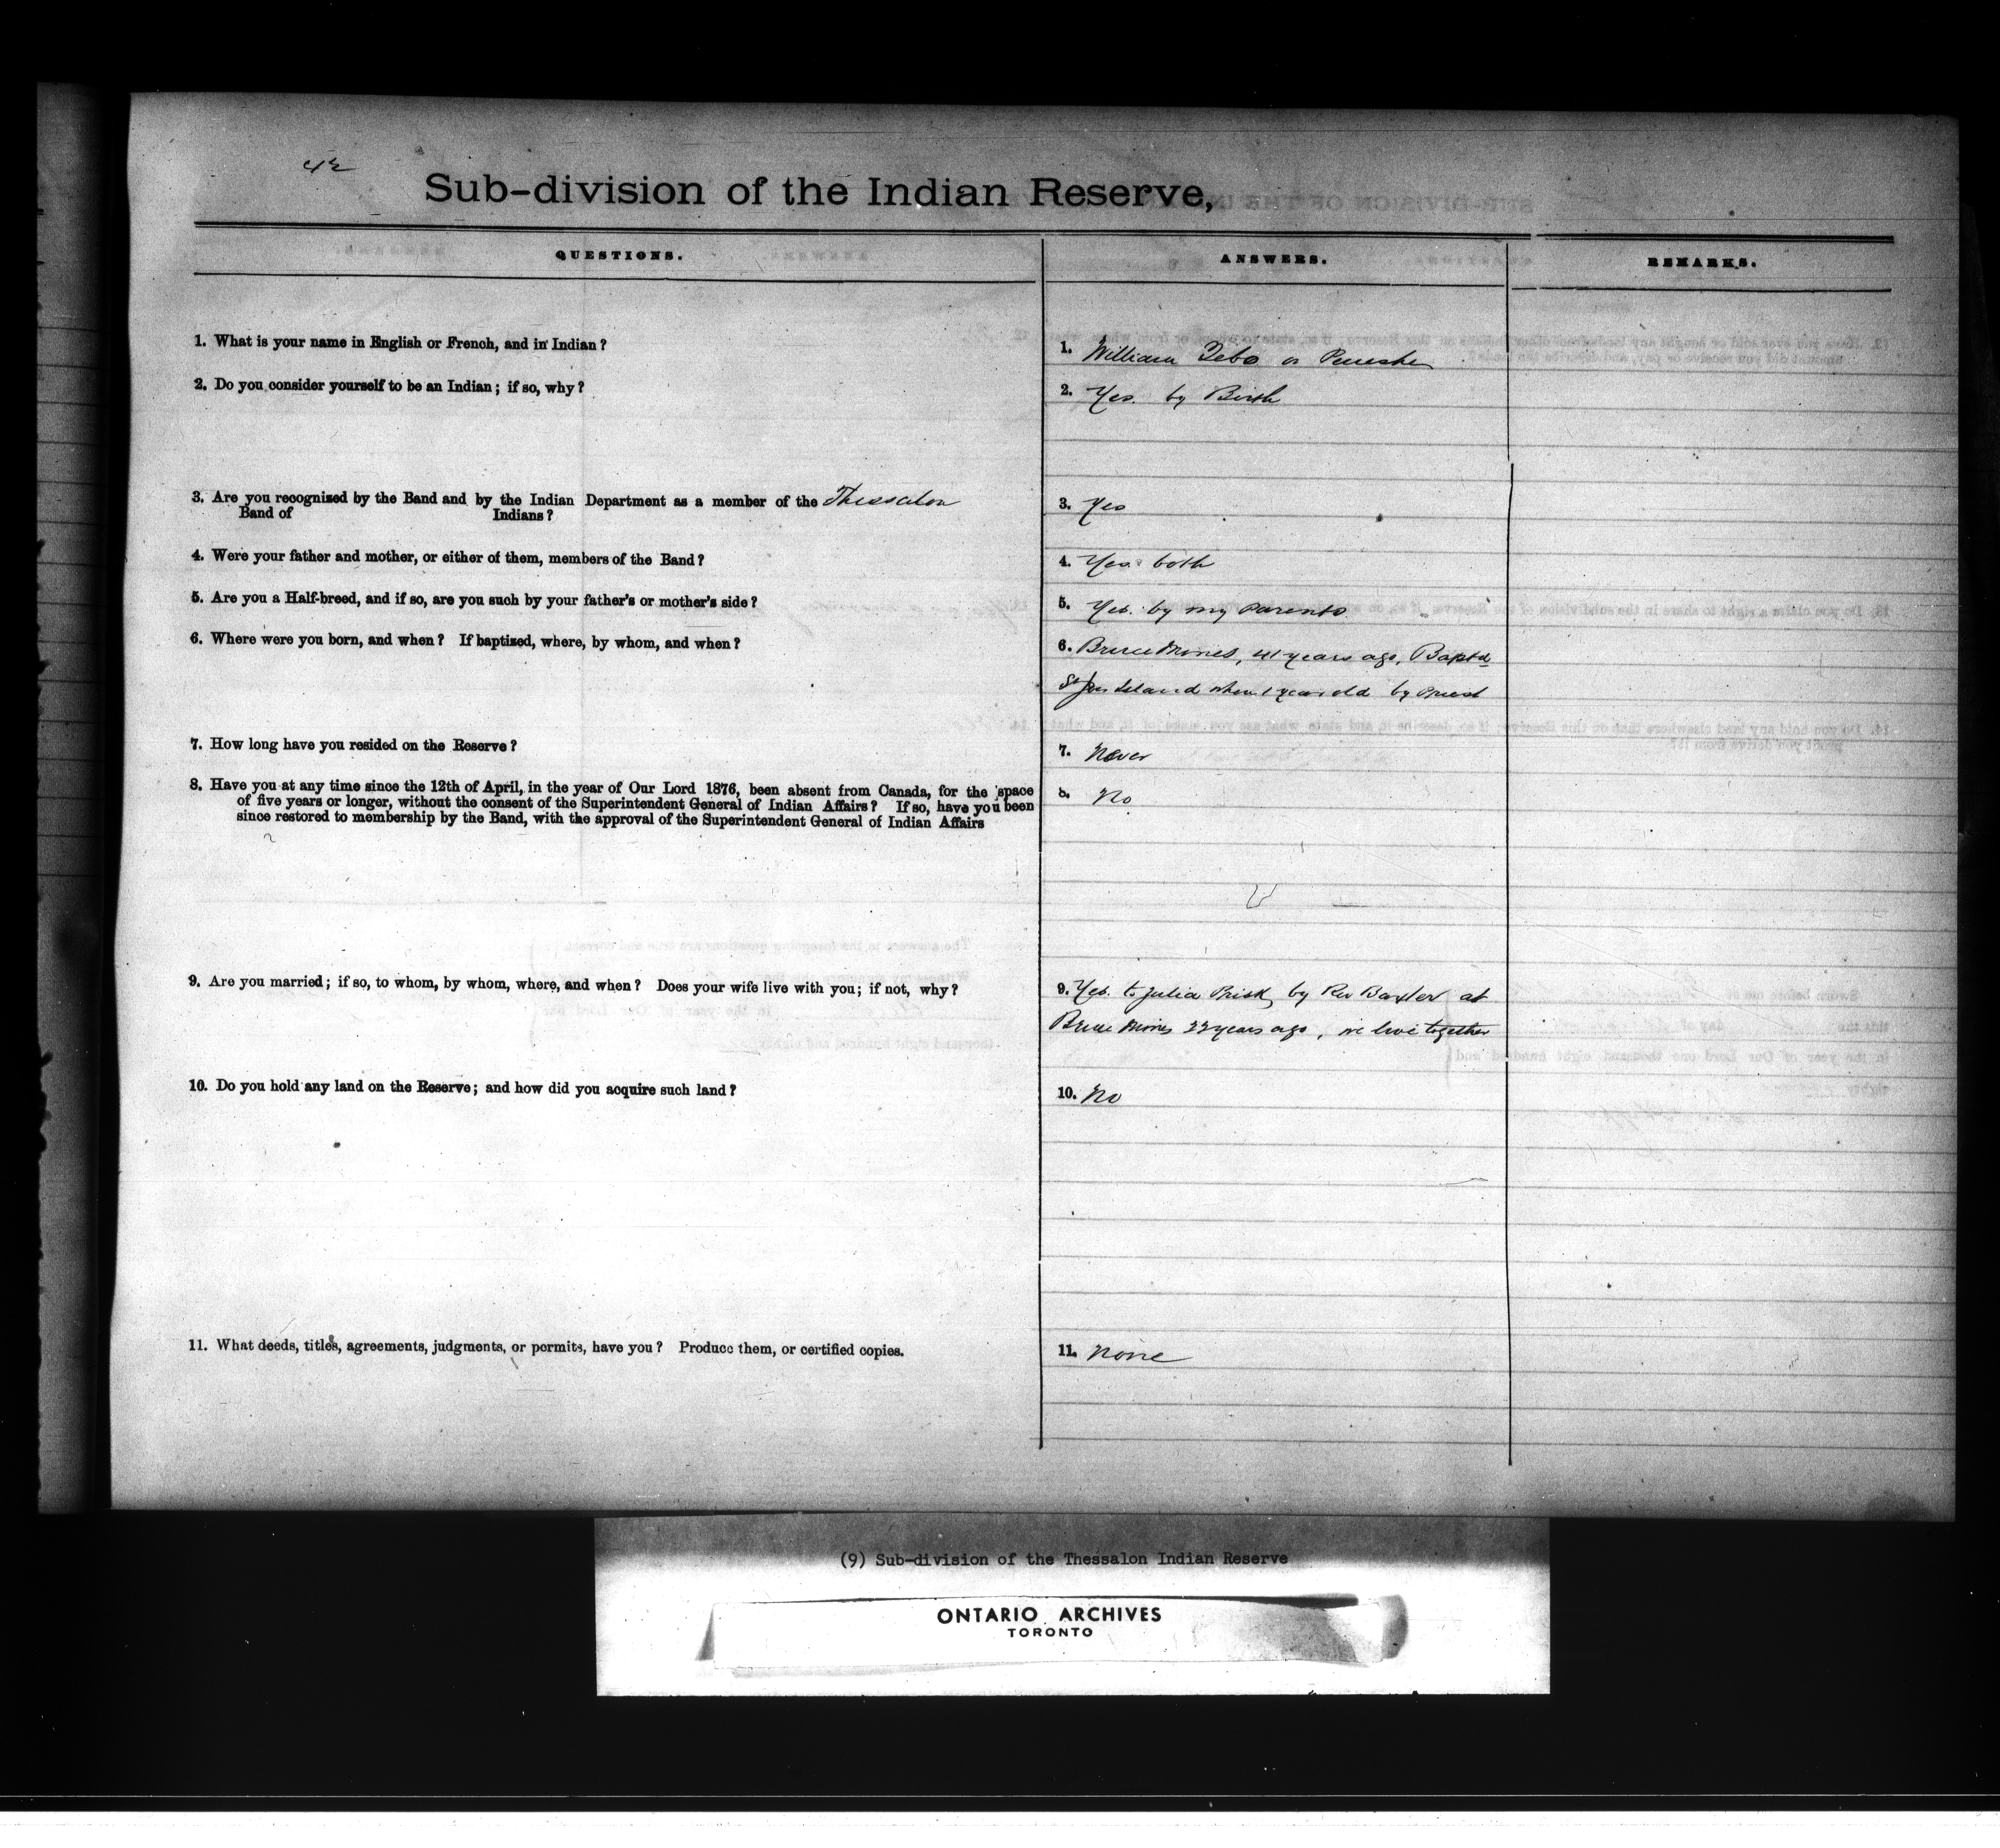 42
Sub-division of the Indian Reserve,
QUESTIONS.
ANSWERS.
REMARKS.
1. What is your name in English or French, and in Indian?
1. William Tebo or
2. Do you consider yourself to be an Indian; if so, why?
2. Yes. by Birth
3. Are you recognized by the Band and by the Indian Department as a member of the Thessalon
Band of Indians?
3. Yes
4. Were your father and mother, or either of them, members of the Band?
4. Yes. both
5. Are you a Half-breed, and if so, are you such by your father's or mother's side?
5. Yes. by my Parents
6. Where were you born, and when? If baptized, where, by whom, and when?
6. Bruce Mines, 41 years ago, Baptd
St Jos Island when 1 year old by Priest
7. How long have you resided on the Reserve?
7. Never
8. Have you at any time since the 12th of April, in the year of Our Lord 1876, been absent from Canada, for the space
of five years or longer, without the consent of the Superintendent General of Indian Affairs? If so, have you been
since restored to membership by the Band, with the approval of the Superintendent General of Indian Affairs
8. No
9. Are you married; if so, to whom, by whom, where, and when? Does your wife live with you; if not, why?
9. Yes. to Julia Brisk, by Rev Baxter at
Bruce Mines 22 years ago, we live together
10. Do you hold any land on the Reserve; and how did you acquire such land?
10. No
11. What deeds, titles, agreements, judgments, or permits, have you? Produce them, or certified copies.
11. None
(9) Sub-division of the Thessalon Indian Reserve
ONTARIO ARCHIVES
TORONTO